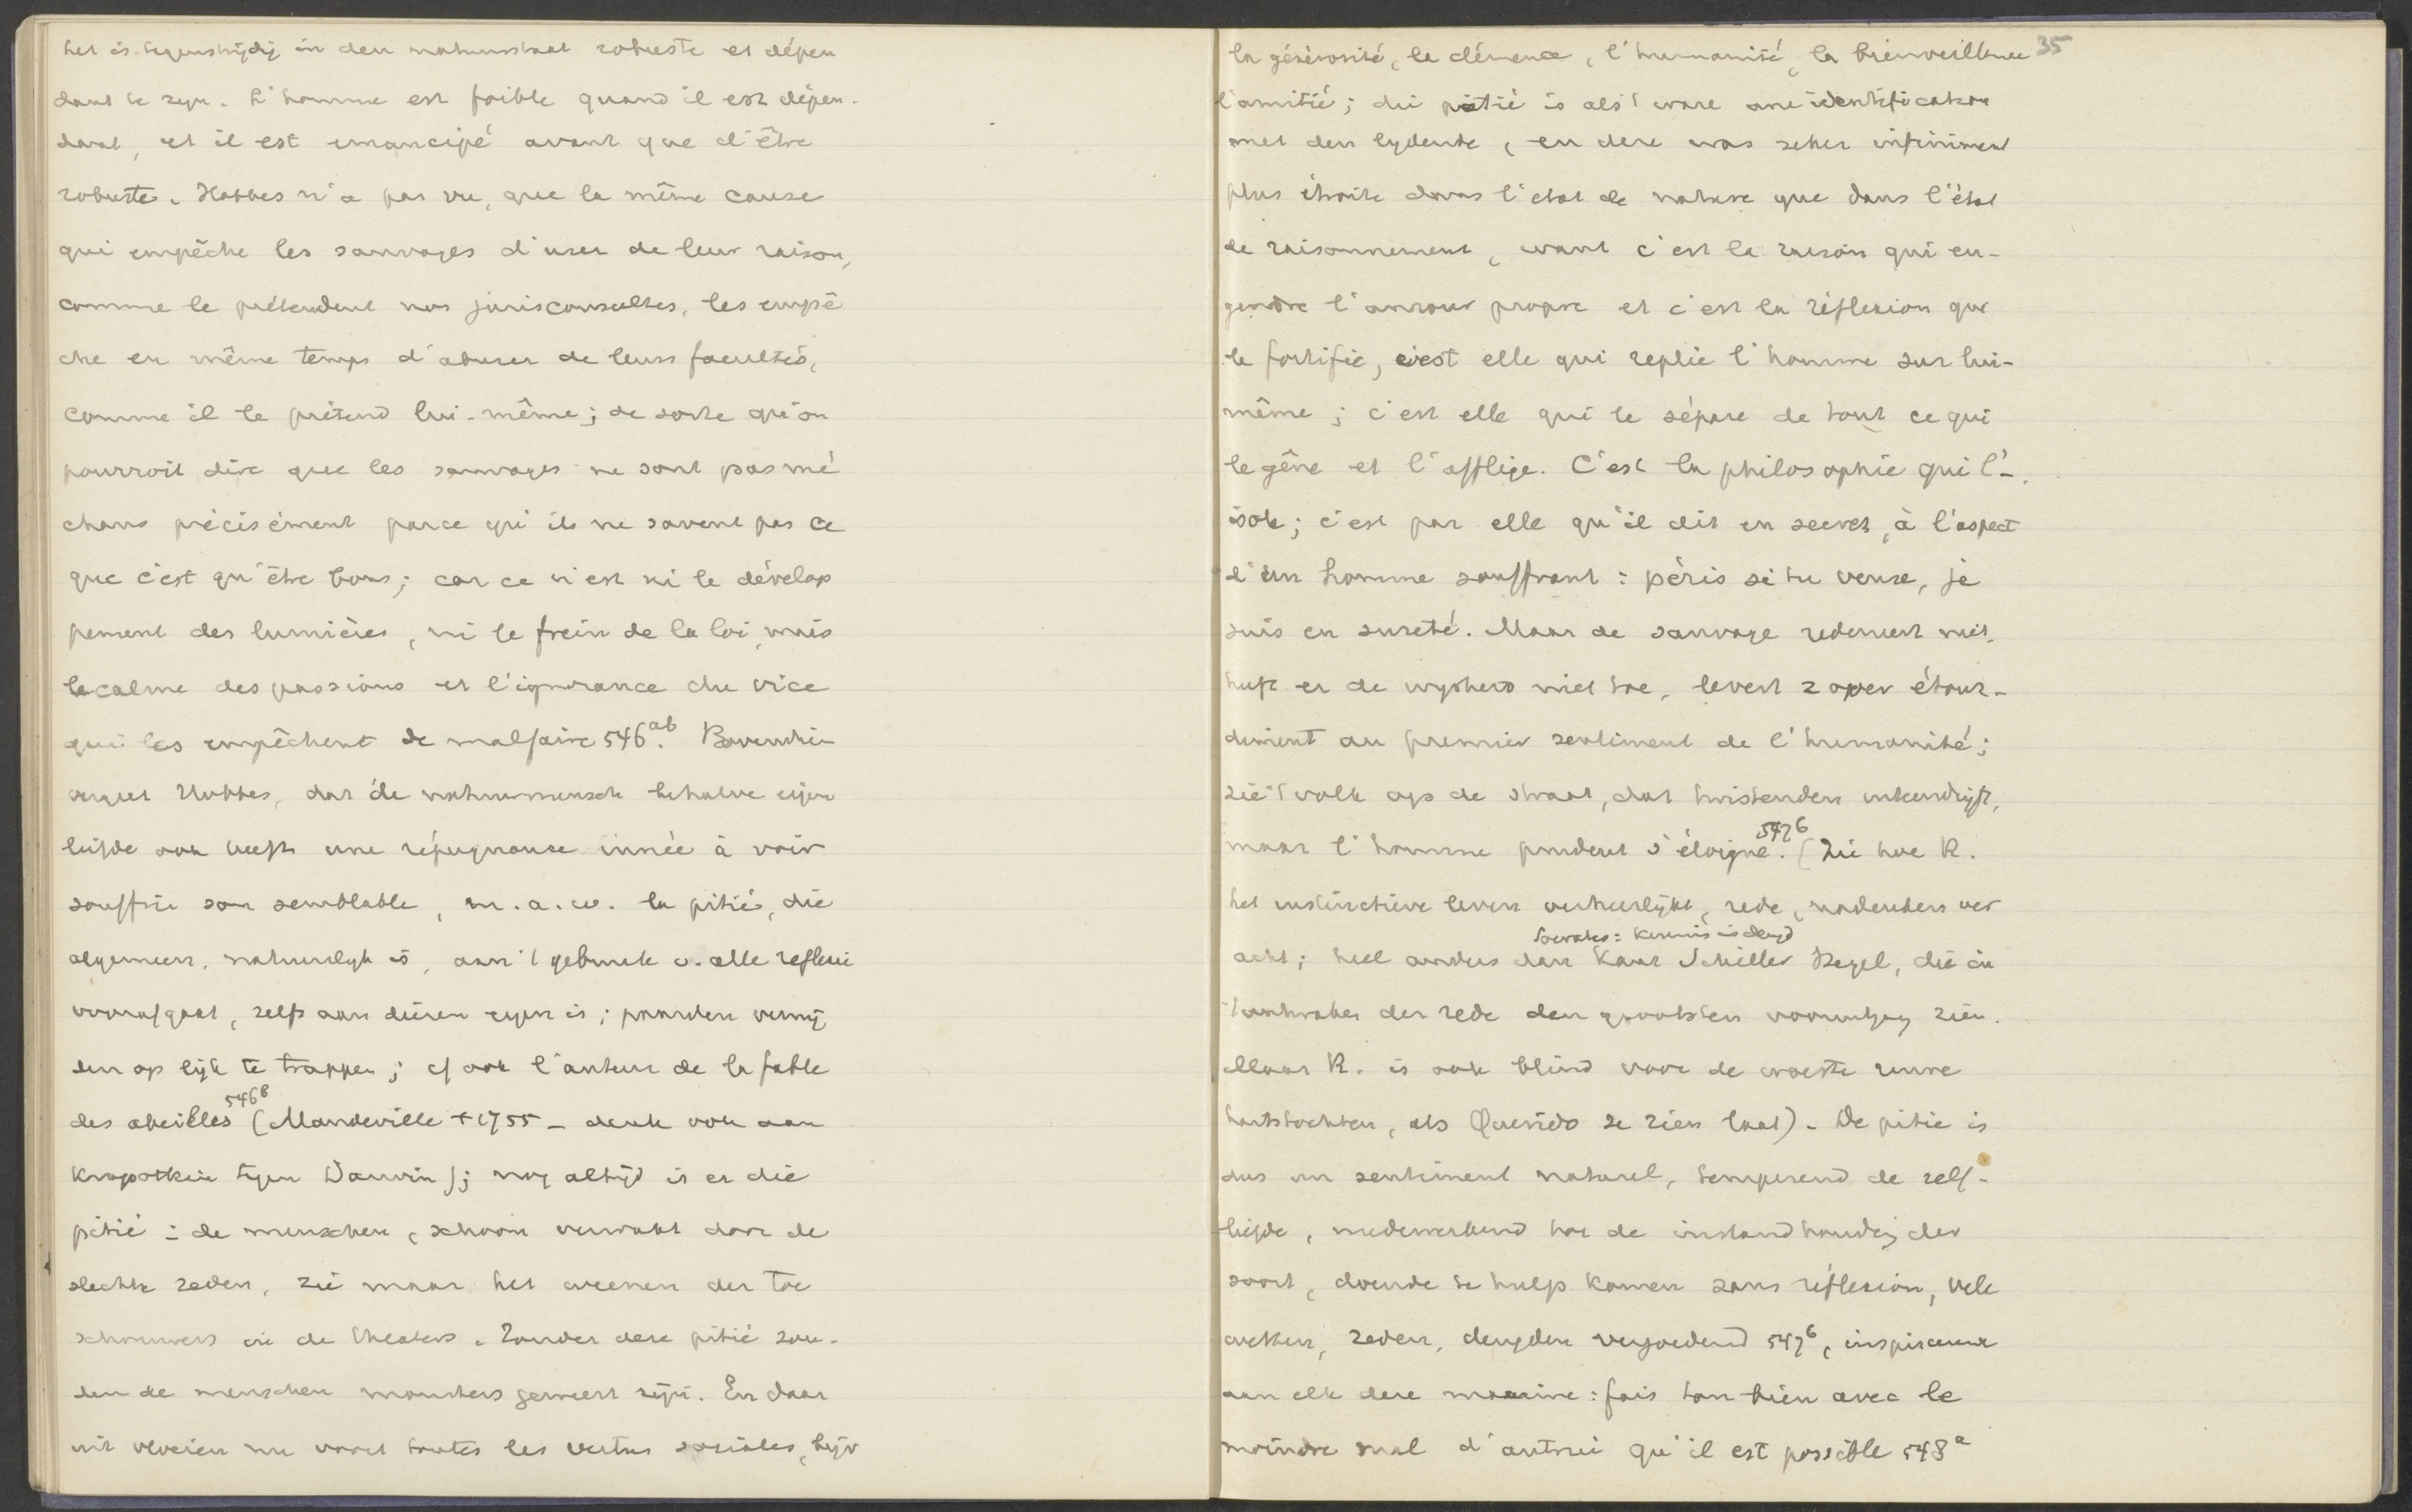 het is tegenstrijdig in den natuurstaat robuste et dépen
dant te zyn. L'homme est foible quand il est dépen-
dant, et il est emancipé avant que d'être
robuste. Hobbes n'a pas vu, que la même cause
qui empêche les sauvages d'user de leur raison,
comme le prétendent nos jurisconsultes, les empê
che en même temps d'abuser de leurs facultés,
comme il le prétend lui-même; de sorte qu'on
pourroit dire que les sauvages ne sont pas mé
chans précisément parce qu'ils ne savent pas ce
que c'est qu'être bons; car ce n'est ni le dévelop
pement des lumières, ni le frein de la loi, mais
le calme des passions et l'ignorance du vice
qui les empêchent de malfaire 546ab. Bovendien
vergeet Hobbes, dat de natuurmensch behalve eigen
liefde ook heeft une répugnance innée à voir
souffrir son semblable, m.a.w. la pitié, die
algemeen, natuurlyk is, aan 't gebruik v. alle reflexie
voorafgaat, zelfs aan dieren eigen is; paarden vermij
den op lijk te trappen; cf ook l'auteur de la fable
des abeilles 546b (Mandeville + 1755 - denk ook aan
Kropotkin tegen Darwin); nog altijd is er die
pitié: de menschen, schoon verwakt door de
slechte zeden, zie maar het weenen der toe
schouwers in de theaters. Zonder deze pitié zou-
den de menschen monsters geweest zijn. En daar
uit vloeien nu voort toutes les vertus sociales, bijv
la générosité, la clémence, l'humanité, la bienveillance 35
l'amitié; die pitié is als 't ware une identification
met den lydende, en deze was zeker infiniment
plus étroite dans l'etat de nature que dans l'état
de raisonnement, want c'est la raison qui en-
gendre l'amour propre et c'est la réflexion qui
le fortifie, c'est elle qui replie l'homme sur lui-
même; c'est elle qui le sépare de tout ce qui
le gêne et l'afflige. C'est la philosophie qui l'-
isole; c'est par elle qu'il dit en secret, à l'aspect
d'un homme souffrant: péris si tu veux, je
suis en sureté. Maar de sauvage redeneert niet,
heeft er de wysheid niet toe, levert z over étour-
diment au premier sentiment de l'humanité;
zie 't volk op de straat, dat twistenden
maar l'homme prudent s'éloigne. 547b (Zie hoe R.
het instinctieve leven verheerlijkt, rede, nadenken ver
Socrates: kennis is deugd
acht; heel anders dan Kant Schiller Hegel, die in
't ontwaken der rede den grootsten vooruitgang zien.
Maar R. is ook blind voor de woeste ruwe
hartstochten, als Querido ze zien laat). De pitié is
dus un sentiment naturel, temperend de zelf-
liefde, medewerkend tot de instandhouding der
soort, doende te hulp komen sans réflexion, vele
wetten, zeden, deugden vergoedend 547b, inspireerend
aan elk deze maxime: fais ton bien avec le
moindre mal d'autrui qu'il est possible 548a